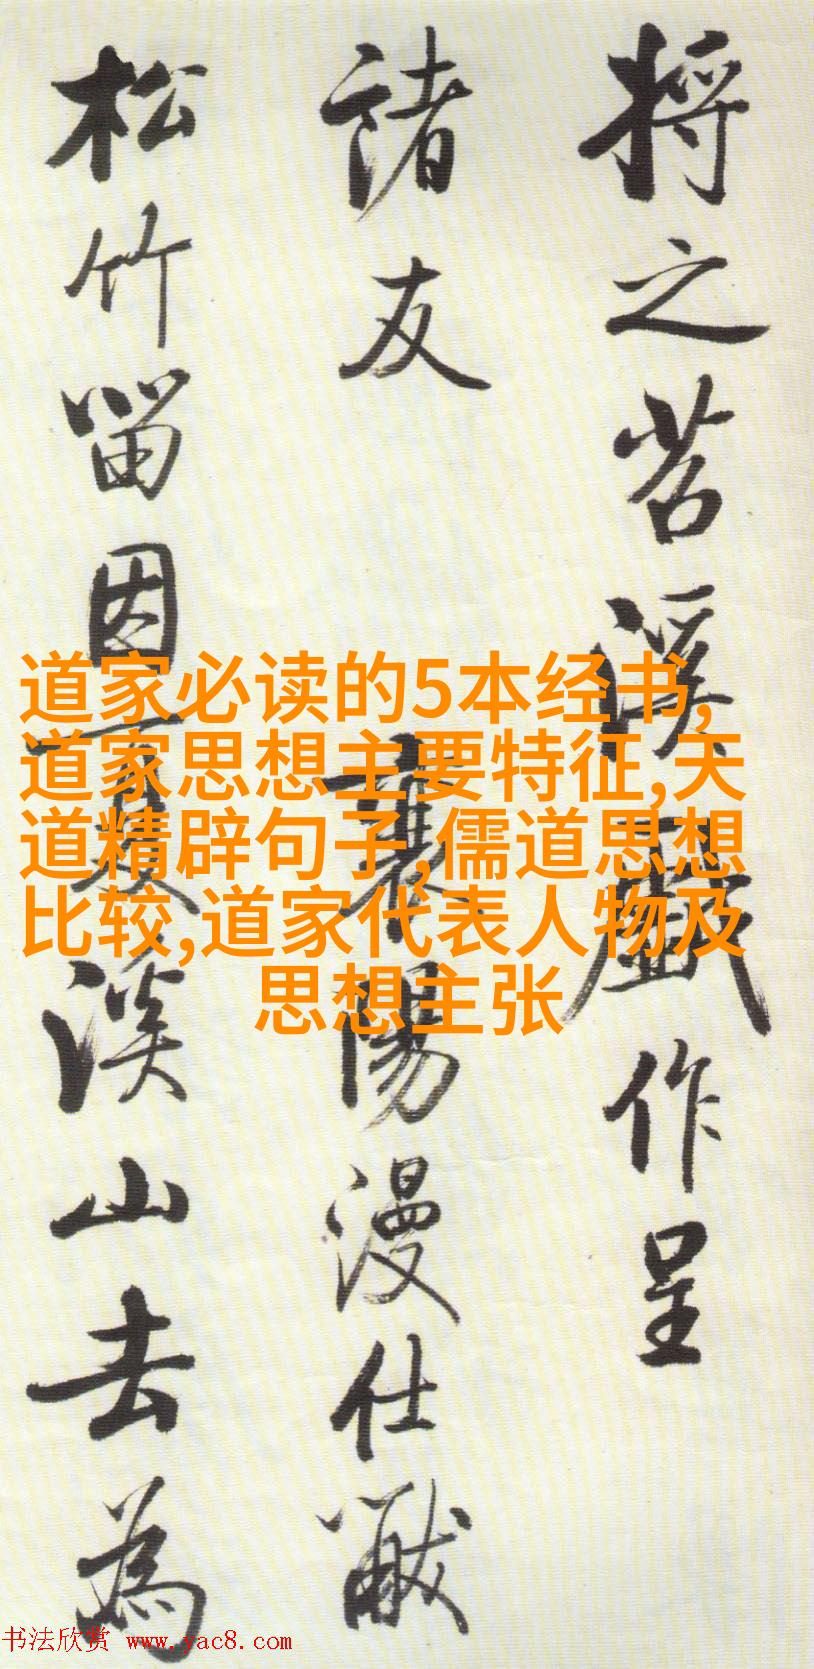 将之苕溪戲作呈
諸友
襄陽漫仕黻
松竹留因夏溪山去為
道家必读的5本经书,
道家思想主要特征,天
道精辟句子,儒道思想
比较,道家代表人物及
思想主张
书法欣赏 www.yac8.com